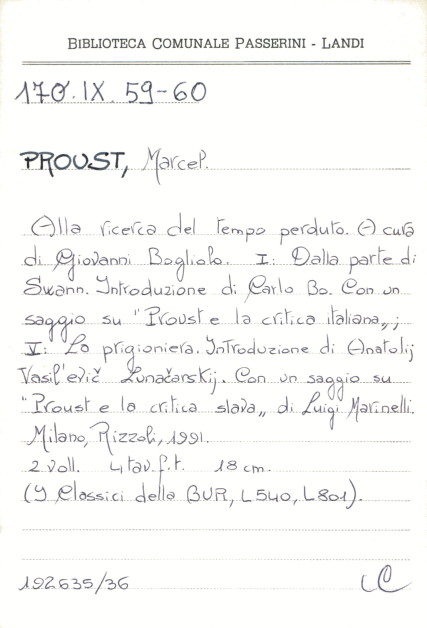 BIBLIOTECA COMUNALE PASSERINI - LANDI
170.IX.59-60
PROUST, Marcel.
Alla ricerca del tempo perduto. A cura
di Giovanni Bogliolo. I: Dalla parte di
Swann. Introduzione di Carlo Bo. Con un
saggio su "Proust e la critica italiana„;
V: La prigioniera. Introduzione di Anatolij
Vasil'evič Lunačarskij. Con un saggio su
"Proust e la critica slava„ di Luigi Marinelli.
Milano, Rizzoli, 1991.
2 voll. 4 tav. f.t. 18 cm.
(I Classici della BUR, L540, L801).
192635/36